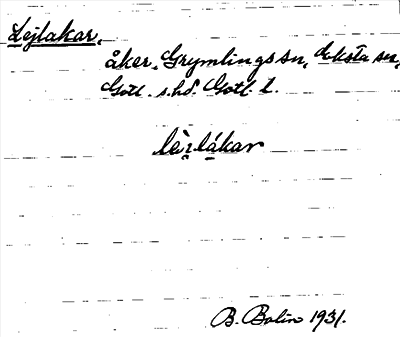 Lejlakar,
åker, Grymlings sn, Eksta sn,
Gotl. s. hd. Gotl. l.
lèi̯lákar
B. Bolin 1931.